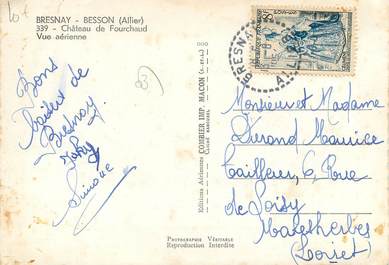 10€
BRESNAY - BESSON (Allier)
339 - Château de Fourchaud
Vue aérienne
83
Bons
baisers de
Bresnay
Simone
Editions Aériennes COMBIER IMP. MACON (S.-et-L.)
PHOTOGRAPHIE VÉRITABLE
Reproduction Interdite
BRESNAY
Monsieur et Madame
Durand Maurice
Tailleur, 6, Rue
de Soisy
Malesherbes
(Loiret)